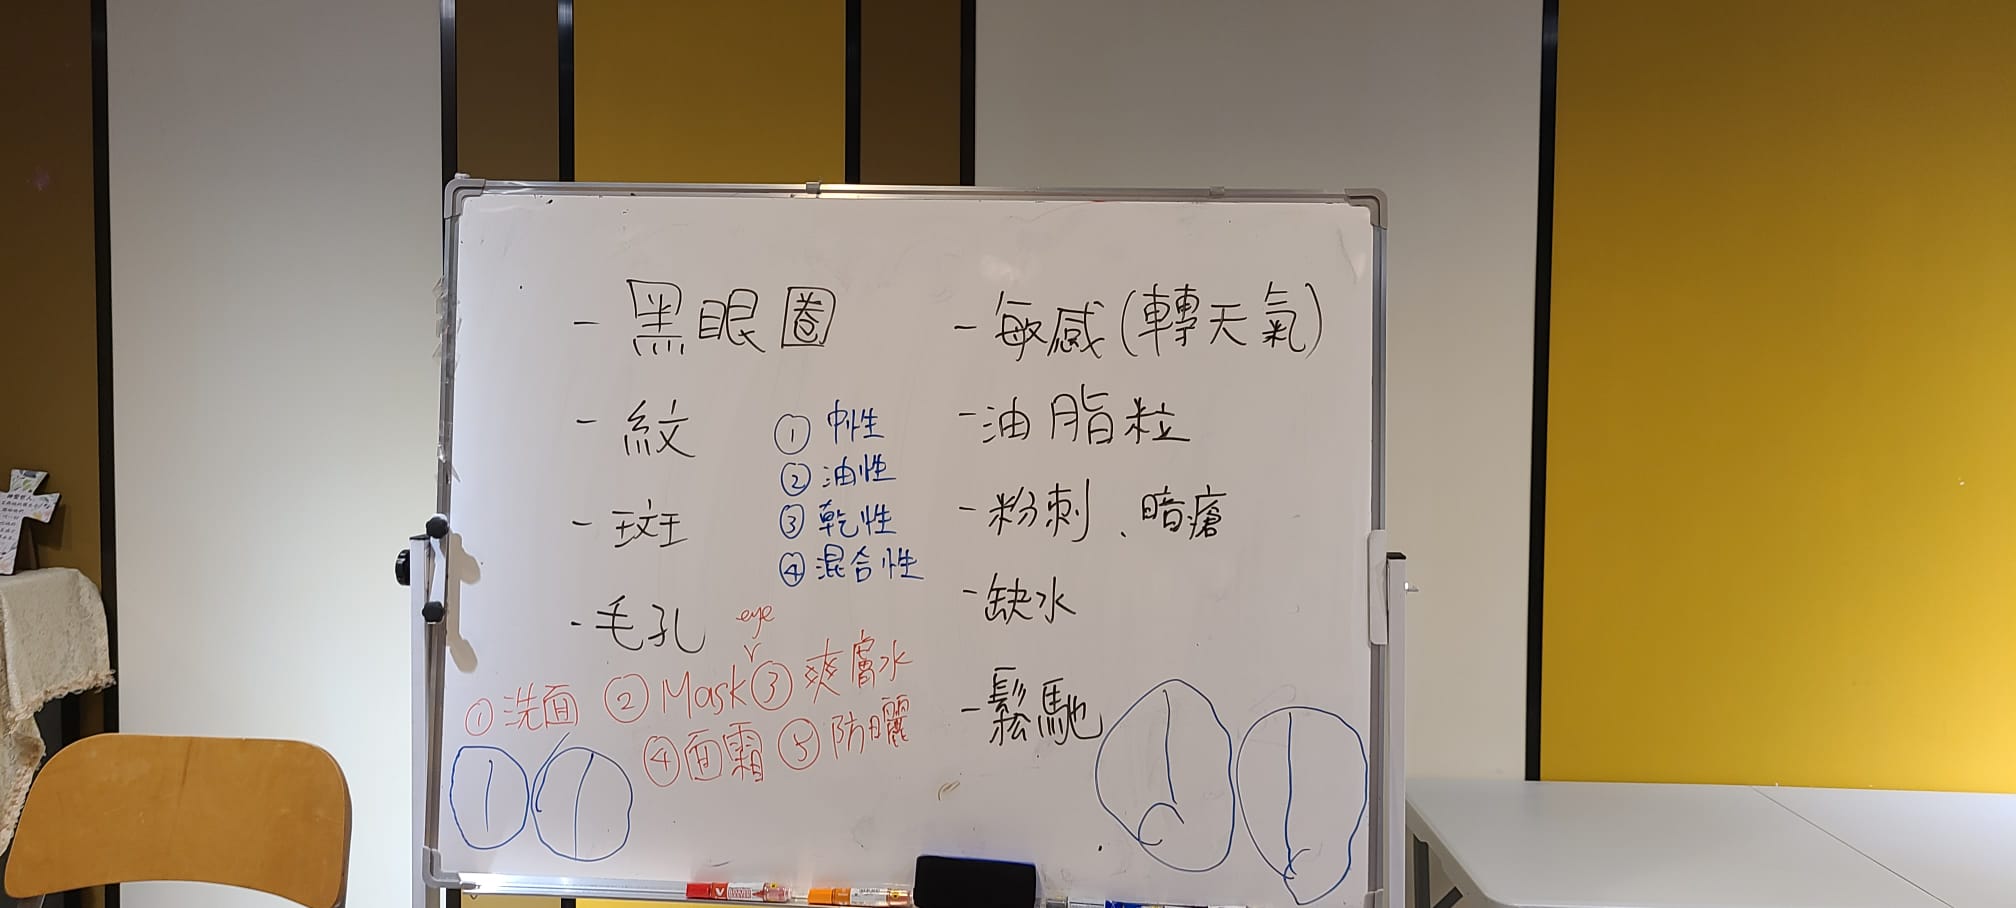 - 黑眼圈
- 紋
- 斑
- 毛孔
① 中性
② 油性
③ 乾性
④ 混合性
- 敏感(轉天氣)
- 油脂粒
- 粉刺、暗瘡
- 缺水
- 鬆馳
eye
① 洗面 ② Mask ③ 爽膚水
④ 面霜 ⑤ 防曬